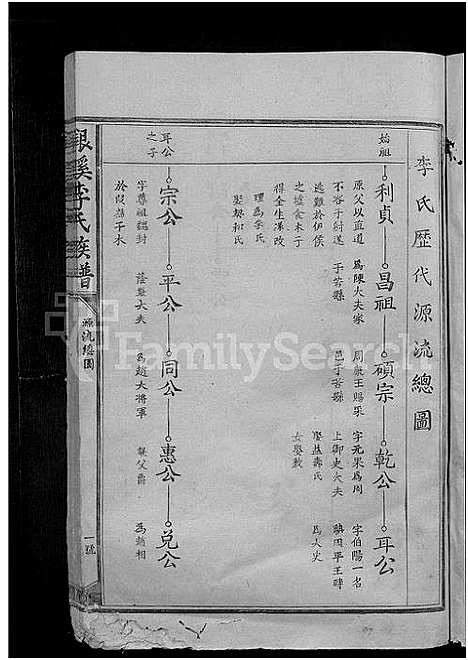 李氏歷代源流總圖
始祖
利貞
昌祖
碩宗
乾公
耳公
原父以直道
不容于紂遂
逃難於伊侯
之墟食木子
得全生漢改
理為李氏
娶契和氏
為陳大夫家
于苦縣
周康王賜采
邑于苦縣
字元果為周
上御史大夫
娶益壽氏
女嬰敷
字伯陽一名
為太史
耳公
之子
宗公
平公
同公
惠公
兌公
字尊祖
封
於段
干木
大夫
為趙大將軍
襲父爵
為趙相
銀溪李氏族譜
源流總圖
FamilySearch